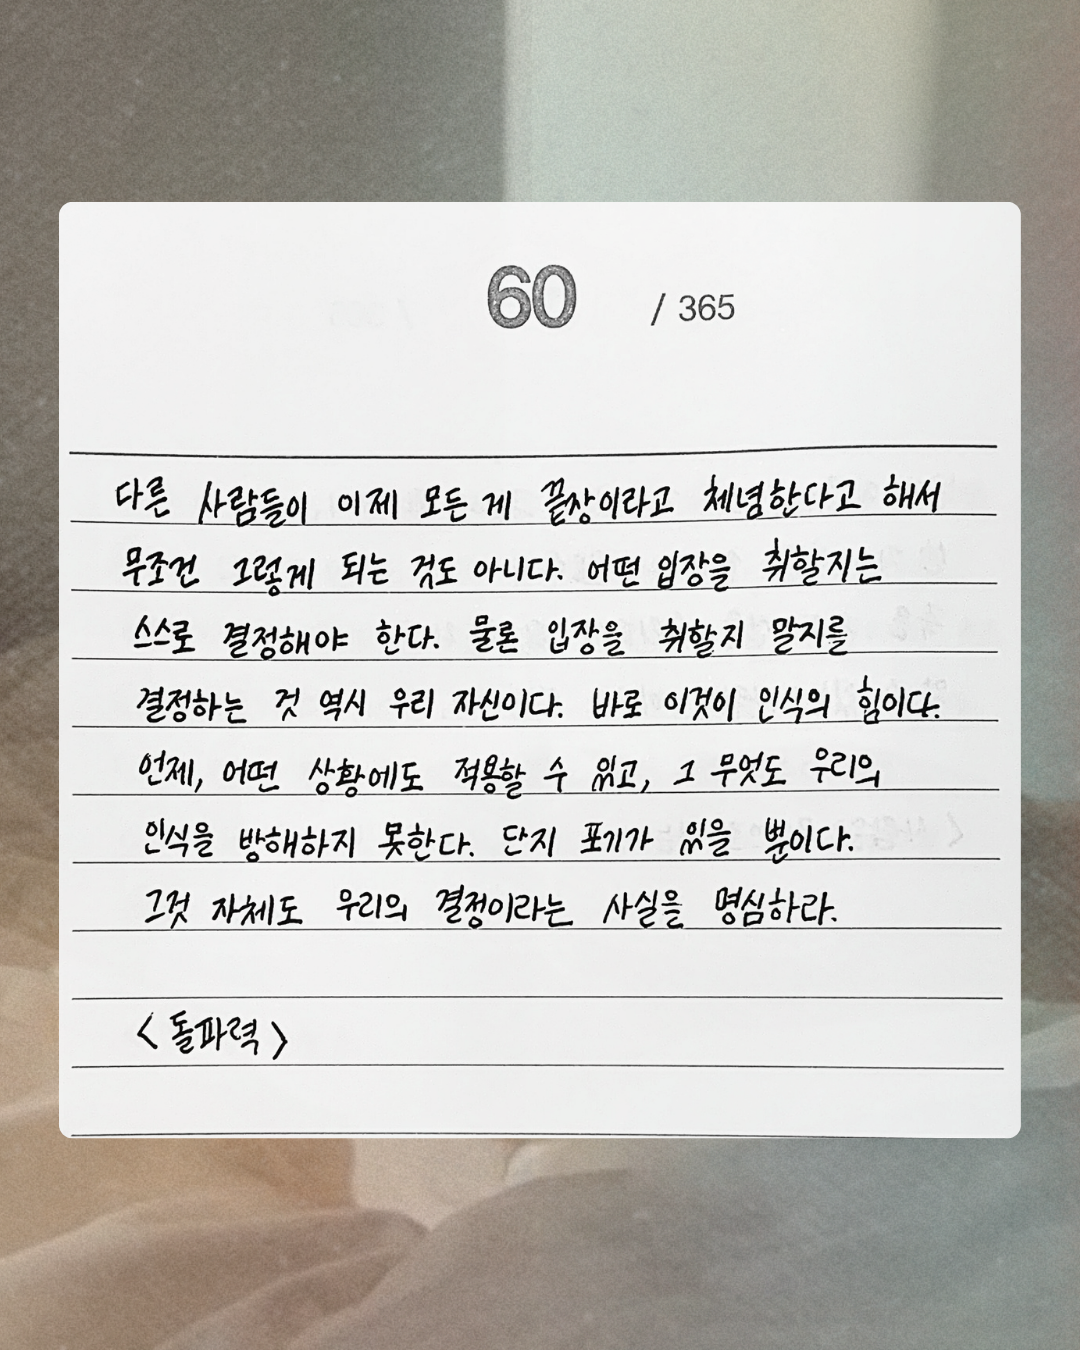 60 / 365
다른 사람들이 이제 모든 게 끝장이라고 체념한다고 해서
무조건 그렇게 되는 것도 아니다. 어떤 입장을 취할지는
스스로 결정해야 한다. 물론 입장을 취할지 말지를
결정하는 것 역시 우리 자신이다. 바로 이것이 인식의 힘이다.
언제, 어떤 상황에도 적용할 수 있고, 그 무엇도 우리의
인식을 방해하지 못한다. 단지 포기가 있을 뿐이다.
그것 자체도 우리의 결정이라는 사실을 명심하라.
<돌파력>